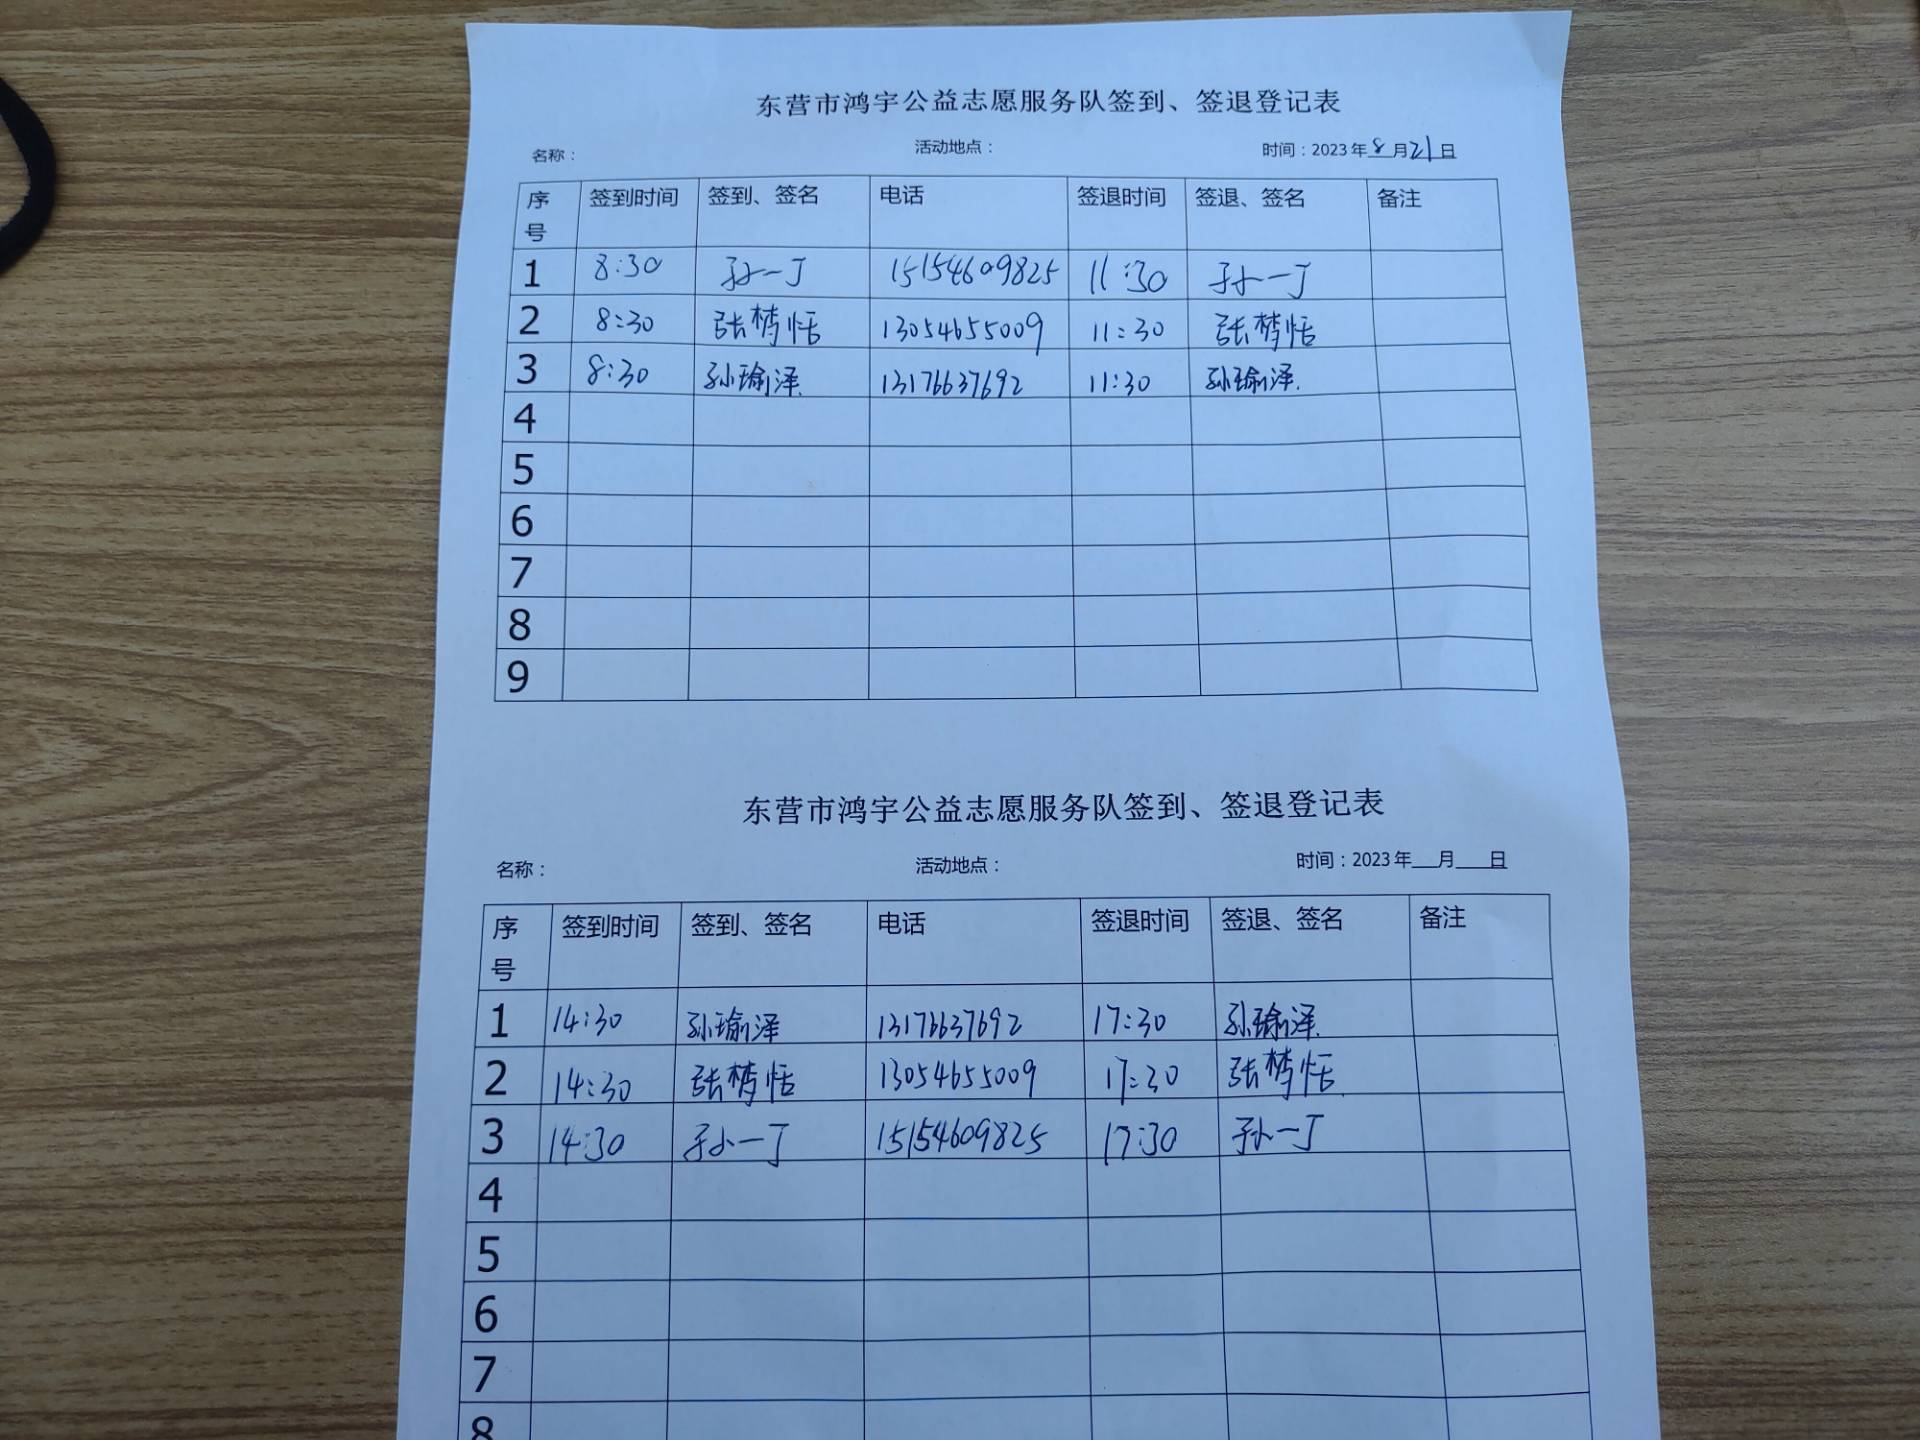 东营市鸿宇公益志愿服务队签到、签退登记表
名称： 活动地点： 时间：2023年8月21日
序号 签到时间 签到、签名 电话 签退时间 签退、签名 备注
1 8:30 孙一丁 15154609825 11:30 孙一丁
2 8:30 张梦恬 13054655009 11:30 张梦恬
3 8:30 孙瑜泽 13176637692 11:30 孙瑜泽
4
5
6
7
8
9
东营市鸿宇公益志愿服务队签到、签退登记表
名称： 活动地点： 时间：2023年___月___日
序号 签到时间 签到、签名 电话 签退时间 签退、签名 备注
1 14:30 孙瑜泽 13176637692 17:30 孙瑜泽
2 14:30 张梦恬 13054655009 17:30 张梦恬
3 14:30 孙一丁 15154609825 17:30 孙一丁
4
5
6
7
8